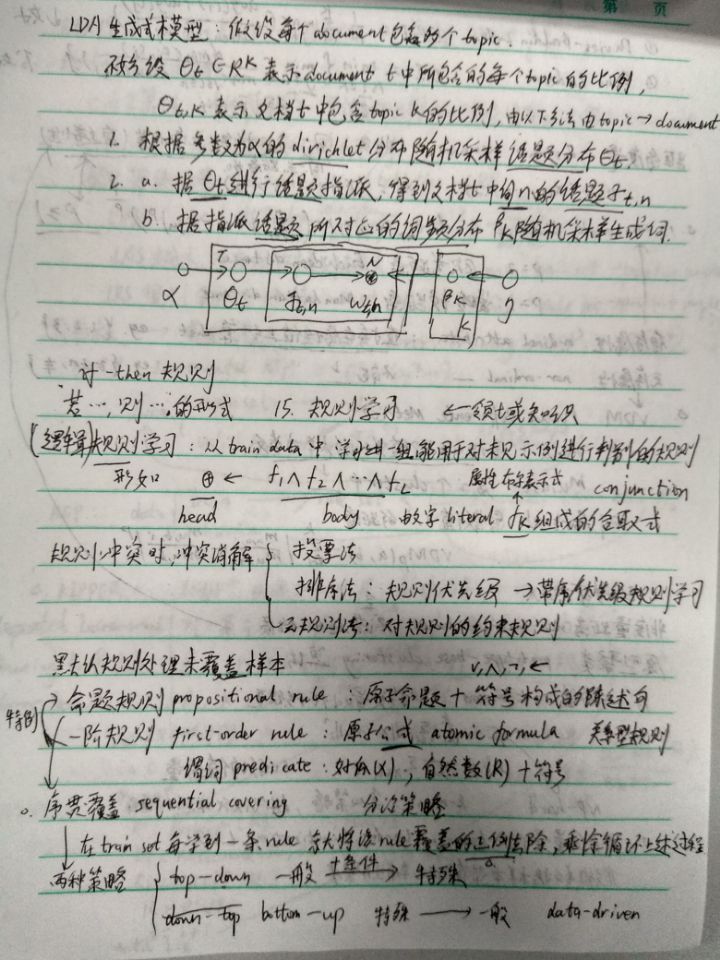 第 页
LDA 生成式模型：假设每个 document 包含多个 topic.
Θt ∈ R^K 表示 document t 中所包含的每个 topic 的比例，
Θt,k 表示文档 t 中包含 topic k 的比例，由以下方法由 topic → document
1. 根据参数为α的 dirichlet 分布随机采样话题分布 Θt.
2. a. 据 Θt 进行话题指派，得到文档 t 中词 n 的话题 zt,n
b. 据指派话题所对应的词频分布 βk 随机采样生成词.
T N
α Θt zt,n wt,n βk K η
if-then 规则
若…, 则…, 的形式 15. 规则学习 ← 领域知识
(逻辑)规则学习：从 train data 中学习出一组能用于对未见示例进行判别的规则
形如 ⊕ ← f1 ∧ f2 ∧ … ∧ fL 属性布尔表示式 conjunction
head body 由文字 literal fk 组成的合取式
规则冲突时，冲突消解 { 投票法
排序法：规则优先级 → 带序/优先级规则学习
元规则法：对规则的约束规则
默认规则处理未覆盖样本 ∨,∧,¬,←
特例 命题规则 propositional rule：原子命题 + 符号构成的陈述句
一阶规则 first-order rule：原子公式 atomic formula 关系型规则
谓词 predicate：对象(X)，自然数(R) + 符号
。序贯覆盖 sequential covering 分治策略
在 train set 每学到一条 rule 就将该 rule 覆盖的正例去除，剩余循环上述过程
两种策略 { top-down 一般 +条件→ 特殊
down-top bottom-up 特殊 → 一般 data-driven